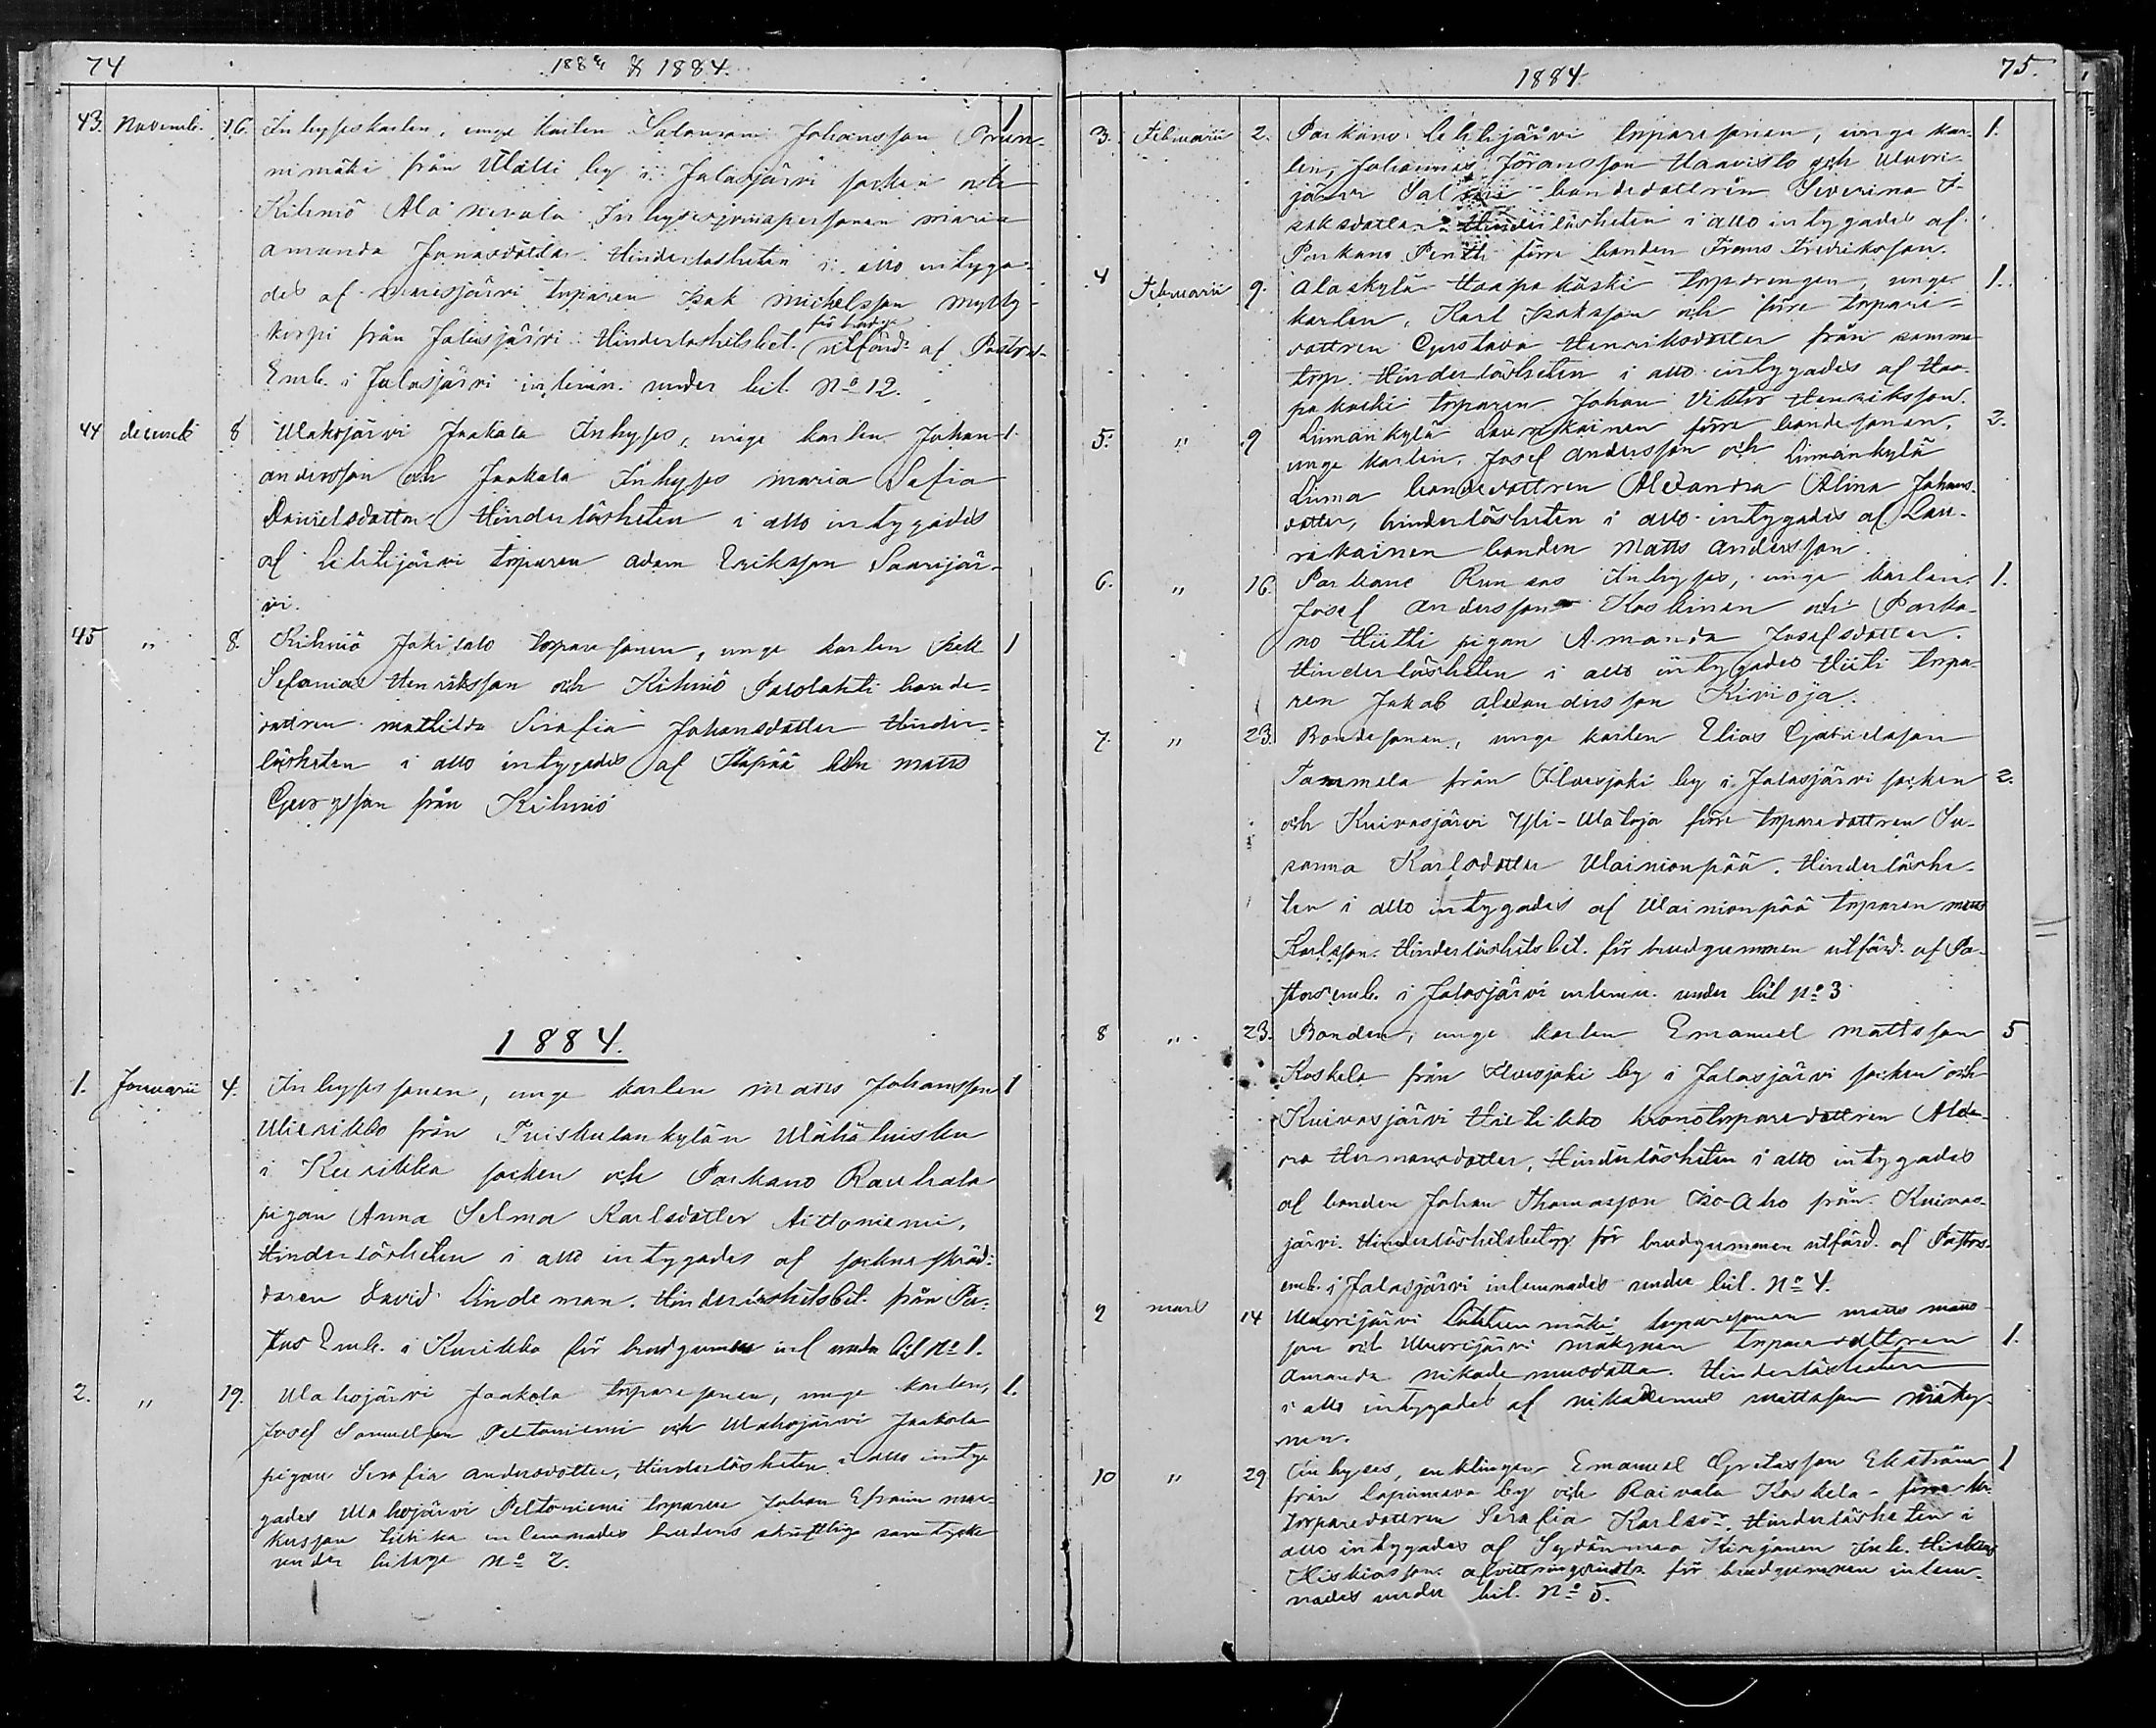 74
1883 & 1884.
43. Novemb. 16. Inhyseskarlen, unge karlen Salomon Johansson Brun- 1
nimäki från by i Jalasjärvi socken och
Kihniö Ala Inhysespersonen Maria
Amanda Jonasdotter. Hinderlösheten i allo intyga-
des af torparen Isak Michelsson Mylly-
korpi från Jalasjärvi. Hinderlöshetsbet. för brudg. utfärd. af Pastors-
Emb. i Jalasjärvi inlemn. under bil. No 12.
44 decemb 8 Wahojärvi Jaakola Inhyses, unge karlen Johan 1.
Andersson och Jaakola Inhyses Maria Sofia
Danielsdotter. Hinderlösheten i allo intygades
af Lihlijärvi torparen Adam Eriksson Saarijär-
vi.
45 " 8. Kihniö Jokisalo torparesonen, unge karlen Isak 1
Sefanias Henriksson och Kihniö Palolahti bonde-
dottren Mathilda Serafia Johansdotter Hinder-
lösheten i allo intygades af Matts
Georgsson från Kihniö
1884.
1. Januarii 4. Inhysessonen, unge karlen Matts Johansson 1
från Tuiskulankylän
i Kurikka socken och Parkano Rauhala
pigan Anna Selma Karlsdotter Aittoniemi,
Hinderlösheten i allo intygades af sockneskräd-
daren David Lindeman. Hinderlöshetsbet. från Pa-
stors Emb. i Kurikka för brudgummen inl under bil No 1.
2. " 19. Wahojärvi Jaakola torparesonen, unge karlen, 1.
Josef Samuelsson Peltoniemi och Wahojärvi Jaakola
pigan Serafia Andersdotter, Hinderlösheten i allo inty-
gades Wahojärvi Peltoniemi torparen Johan Efraim Mar-
kusson inlemnades brudens skriftliga samtycke
under bilaga No 2.
1884
75.
3. Februarii 2. Parkano Lihlijärvi torparesonen, unge kar- 1.
len, Johannes Göransson Haavisto och Wuori-
järvi bondedottren Severina I-
saksdotter. Hinderlösheten i allo intygades af
Parkano Pentti förre bonden Frans Fredriksson.
4 Februarii 9. Alaskylä Haapakoski torpdrengen, unge 1.
karlen, Karl Isaksson och förre torpare-
dottren Gustava Henriksdotter från samma
torp. Hinderlösheten i allo intygades af Haa-
pakoski torparen Johan Viktor Henriksson.
5. " 9 Linnankylä Laurikainen förre bondesonen, 2.
unge karlen, Josef Andersson och Linnankylä
Linna bondedottren Alexandra Alina Johans-
dotter, hinderlösheten i allo intygades af Lau-
rikainen bonden Matts Andersson.
6. " 16. Parkano Inhyses, unge karlen, 1.
Josef Andersson Koskinen och Parka-
no Hiitti pigan Amanda Josefsdotter.
Hinderlösheten i allo intygades Hiiti torpa-
ren Jakob Alexandersson Kivioja.
7. " 23. Bondesonen, unge karlen Elias Gabrielsson
Tammela från Ilvesjoki by i Jalasjärvi socken 2.
och Kuivasjärvi Yli-Watoja förre torparedottren Su-
sanna Karlsdotter Wainionpää. Hinderlöshe-
ten i allo intygades af Wainionpää torparen Matts
Karlsson. Hinderlöshetsbet. för brudgummen utfärd. af Pa-
storsemb. i Jalasjärvi inlemn. under bil No 3
8 " 23. Bonden, unge karlen Emanuel Mattsson 5
Koskela från Ilvesjoki by i Jalasjärvi socken och
Kuivasjärvi kronotorparedottren
Hermansdotter, Hinderlösheten i allo intygades
af bonden Johan Thomasson Iso-Aho från Kuivas-
järvi. Hinderlöshetsbetyg för brudgummen utfärd. af Pastors-
emb. i Jalasjärvi inlemnades under bil. No 4.
9 mars 14 Wuorijärvi torparesonen Matts Matts-
son och Wuorijärvi Mäkynen torparedottren 1.
Amanda Nikodemusdotter. Hinderlösheten
i allo intygades af Nikodemus Mattsson Mäky-
nen.
10 " 29 Inhyses, enklingen Emanuel Gretasson Ekström 1
från by och Raivala Koskela förre
torparedottren Serafia Karlsdr. Hinderlösheten i
allo intygades af Sydänmaa
Hiskiasson. afvittringsindtr. för brudgummen inlem-
nades under bil. No 5.